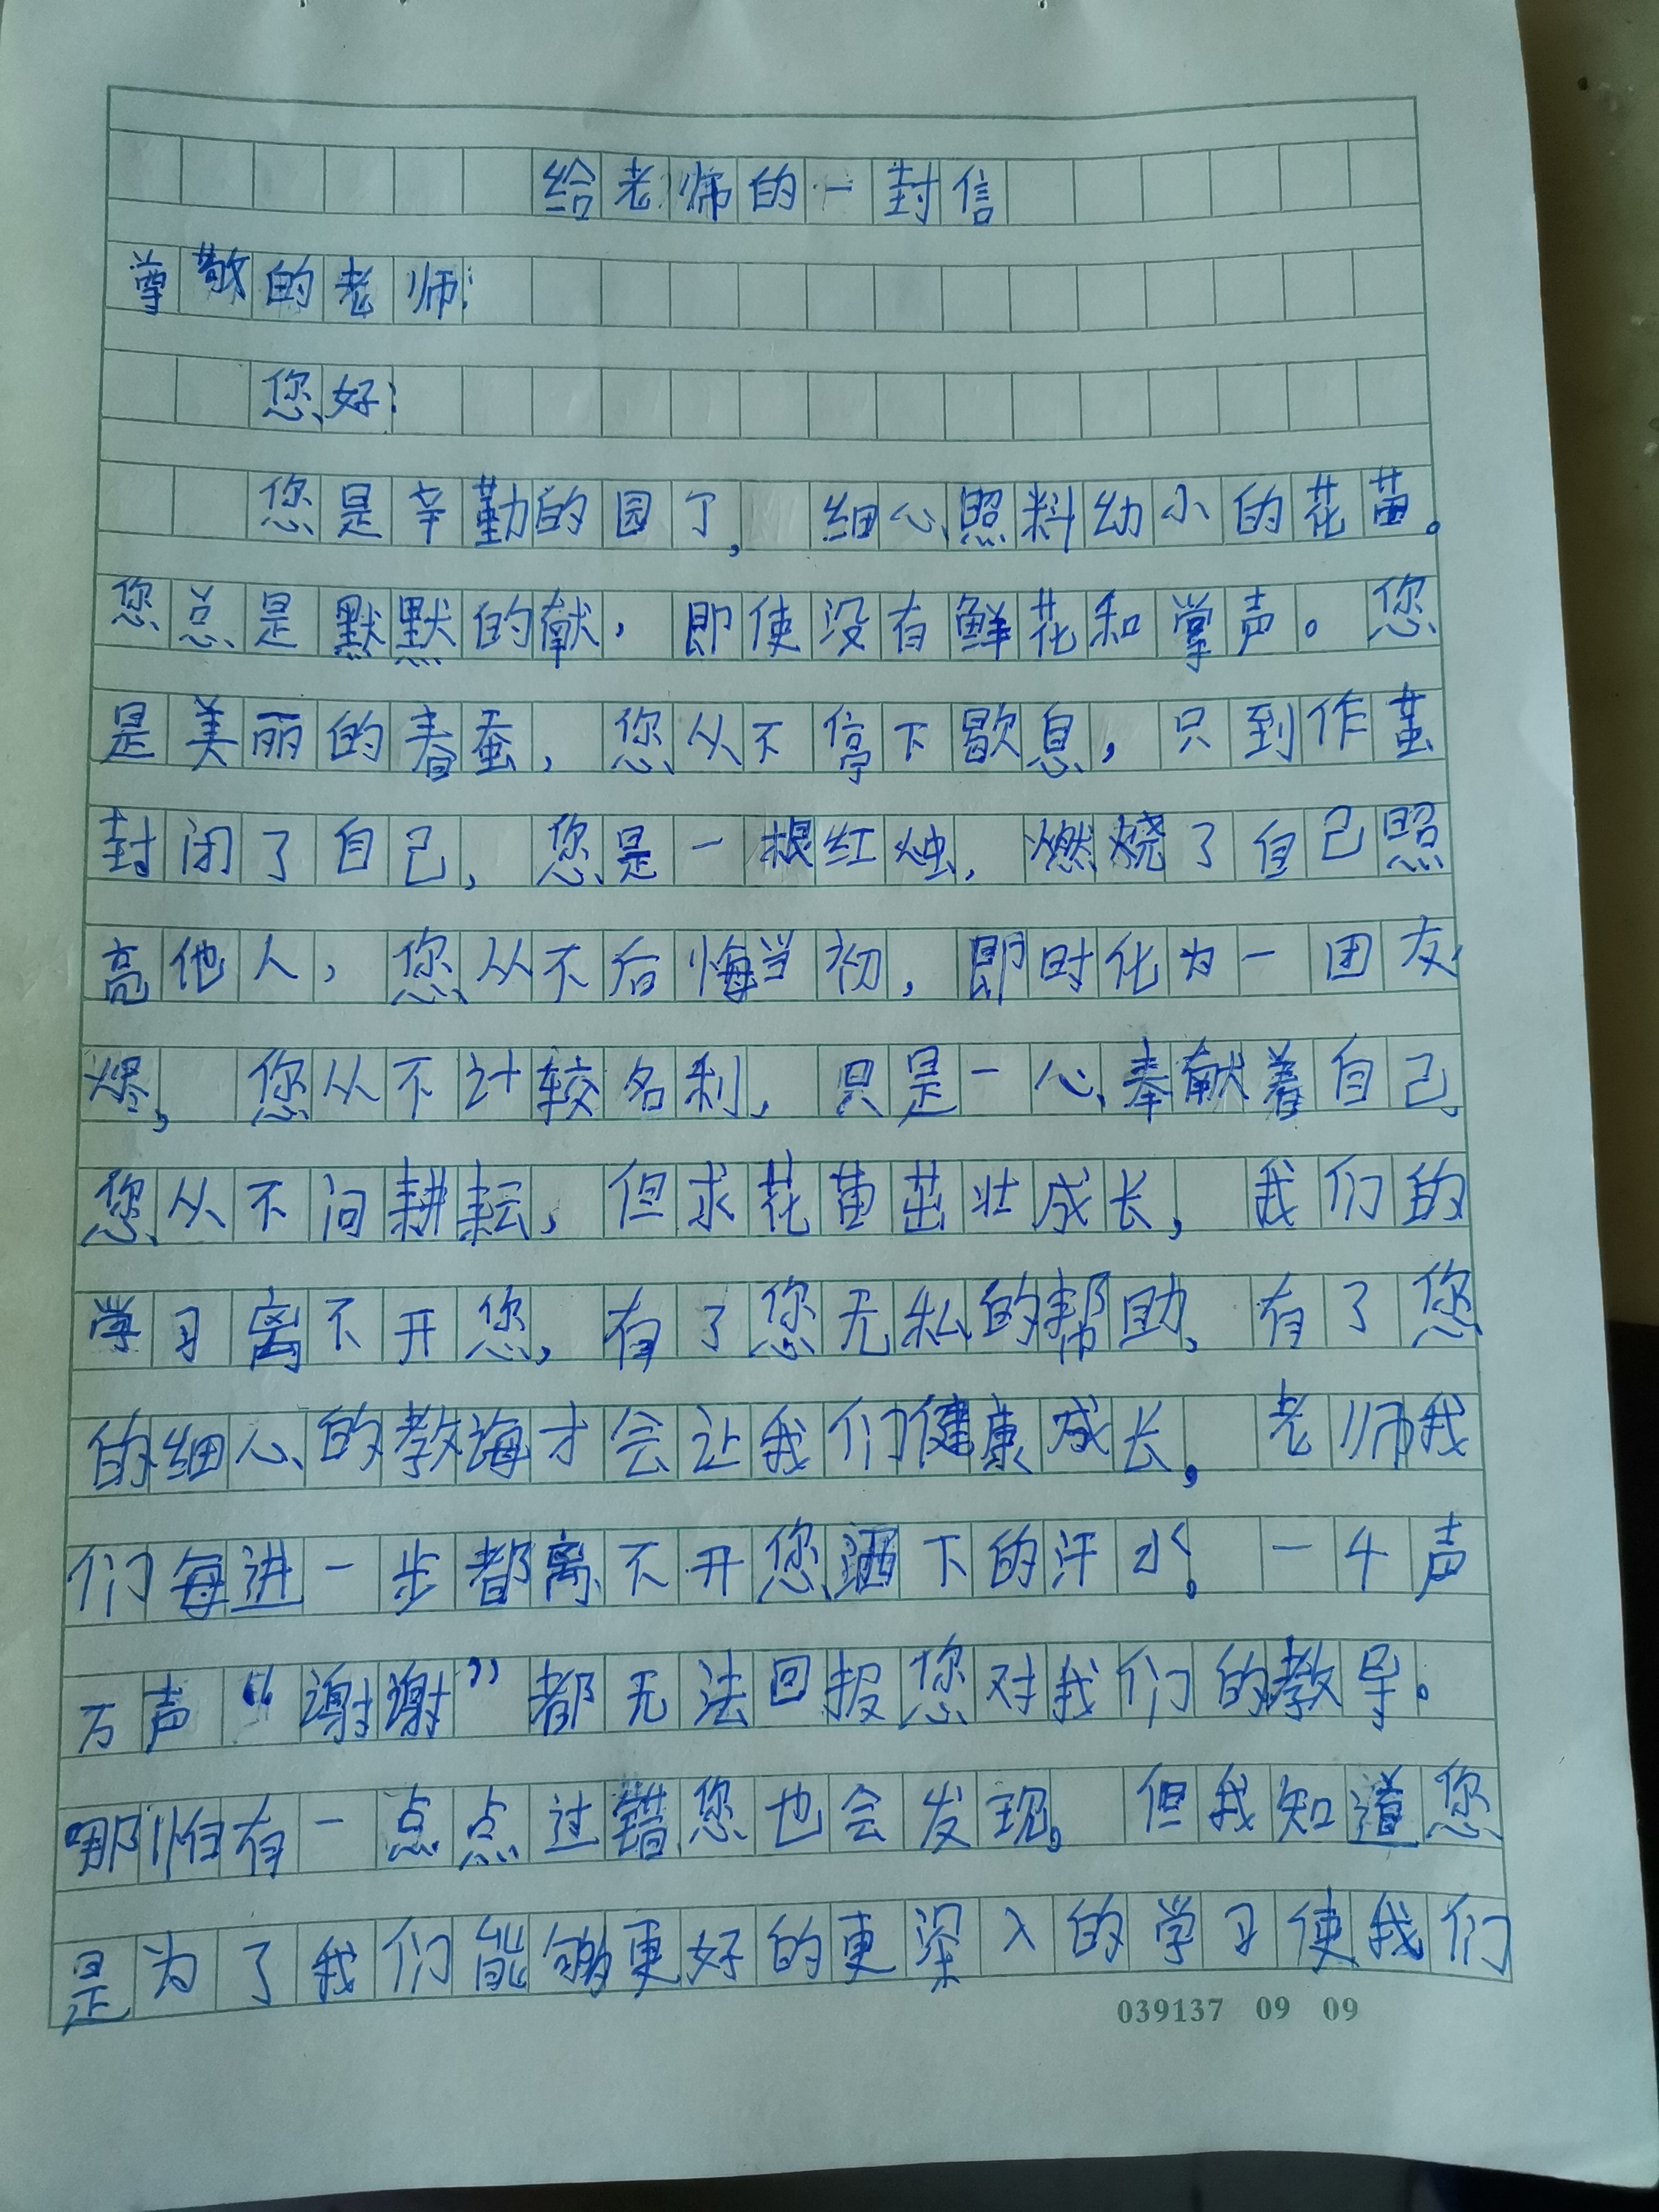 给老师的一封信
尊敬的老师:
您好!
您是辛勤的园丁，细心照料幼小的花苗。
您总是默默的献，即使没有鲜花和掌声。您
是美丽的春蚕，您从不停下歇息，只到作茧
封闭了自己，您是一根红烛，燃烧了自己照
亮他人，您从不后悔当初，即时化为一团灰
烬，您从不计较名利，只是一心奉献着自己，
您从不问耕耘，但求花苗茁壮成长，我们的
学习离不开您，有了您无私的帮助，有了您
的细心的教诲才会让我们健康成长，老师我
们每进一步都离不开您洒下的汗水。一千声
万声“谢谢”都无法回报您对我们的教导。
哪怕有一点点过错您也会发现。但我知道您
是为了我们能够更好的更深入的学习使我们
039137 09 09